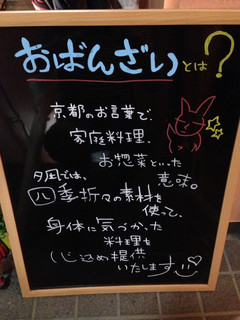 おばんざいとは?
京都のお言葉で、
家庭料理、
お惣菜といった
意味。
では、
四季折々の素材を
使って、
身体に気づかった
料理を
心込め提供
いたします